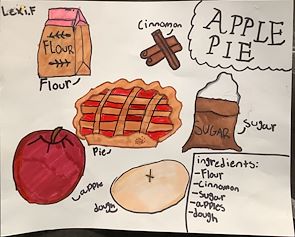 Lexi.F
Cinnamon
APPLE
PIE
FLOUR
Flour
SUGAR
sugar
Pie
apple
dough
ingredients:
-Flour
-Cinnamon
-Sugar
-apples
-dough